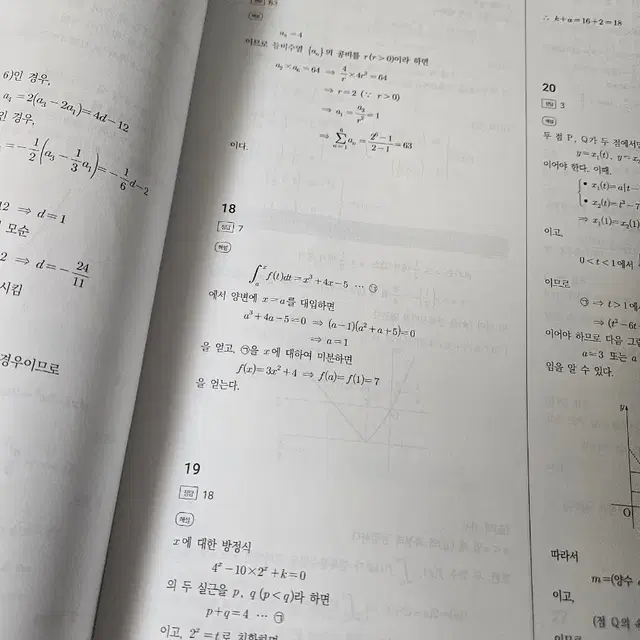 6)인 경우,
a₁=2(a₃-2a₁)=4d-12
인 경우,
=-1/2(a₃-1/3a₁)=-1/6d-2
12 ⇒ d=1
모순
2 ⇒ d=-24/11
시킴
경우이므로
63
해설
a₃=4
이므로 등비수열 {aₙ}의 공비를 r(r>0)이라 하면
a₂×a₆=64 ⇒ 4/r×4r³=64
⇒ r=2 (∵ r>0)
⇒ a₁=a₃/r²=1
⇒ ∑(n=1→6) aₙ=(2⁶-1)/(2-1)=63
이다.
18
정답 7
해설
∫ₐˣ f(t)dt=x³+4x-5 … ㉠
에서 양변에 x=a를 대입하면
a³+4a-5=0 ⇒ (a-1)(a²+a+5)=0
⇒ a=1
을 얻고, ㉠을 x에 대하여 미분하면
f(x)=3x²+4 ⇒ f(a)=f(1)=7
을 얻는다.
19
정답 18
해설
x에 대한 방정식
4ˣ-10×2ˣ+k=0
의 두 실근을 p, q (p<q)라 하면
p+q=4 … ㉠
이고, 2ˣ=t로 치환하면
∴ k+a=16+2=18
20
정답 3
해설
두 점 P, Q가 두 점에서만
y=x₁(t), y=x₂
이어야 한다. 이때,
• x₁(t)=a|t-
• x₂(t)=t³-7
⇒ x₁(1)=x₂(1)
이고,
0<t<1에서
이므로
㉠ ⇒ t>1에서
⇒ (t²-6t
이어야 하므로 다음 그림
a=3 또는 a
임을 알 수 있다.
y
O
따라서
m=(양수
이고,
(점 Q의
이므로